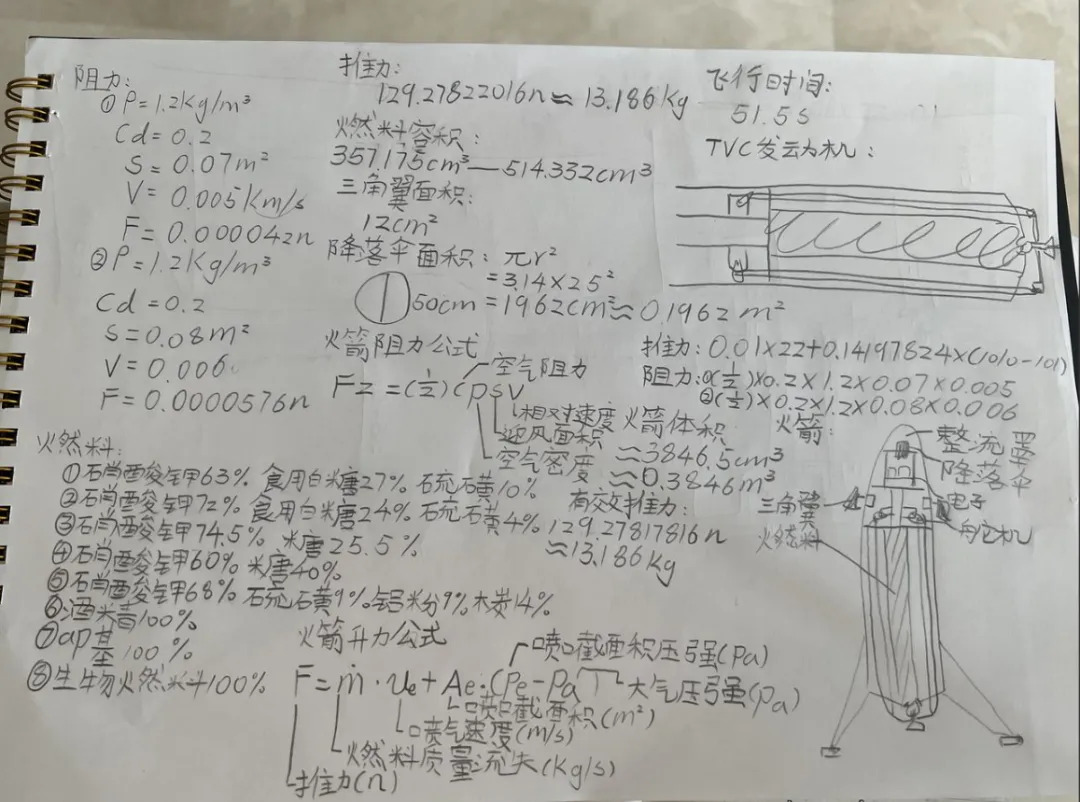 阻力:
①P=1.2Kg/m³
Cd=0.2
S=0.07m²
V=0.005Km/s
F=0.000042n
②P=1.2Kg/m³
Cd=0.2
S=0.08m²
V=0.006
F=0.0000576n
推力:
129.27822016n≈13.186Kg
燃料容积:
357.175cm³—514.332cm³
三角翼面积:
12cm²
降落伞面积:πr²
=3.14×25²
50cm=1962cm²≈0.1962m²
火箭阻力公式
空气阻力
Fz=(1/2)CρSV
相对速度
迎风面积
空气密度
飞行时间:
51.5s
TVC发动机:
推力:0.01×22+0.14197824×(1010-101)
阻力:①(1/2)×0.2×1.2×0.07×0.005
②(1/2)×0.2×1.2×0.08×0.006
火箭体积
≈3846.5cm³
≈0.3846m³
有效推力:
129.27817816n
≈13.186Kg
火箭:
整流罩
降落伞
电子
舵机
三角翼
燃料
燃料:
①硝酸钾63% 食用白糖27% 硫磺10%
②硝酸钾72% 食用白糖24% 硫磺4%
③硝酸钾74.5% 糖25.5%
④硝酸钾60% 糖40%
⑤硝酸钾68% 硫磺9% 铝粉9% 木炭14%
⑥酒精100%
⑦ap基100%
⑧生物燃料100%
火箭升力公式
喷口截面积压强(Pa)
F=ṁ·Ue+Ae·(Pe-Pa)
大气压强(Pa)
喷口截面积(m²)
喷气速度(m/s)
燃料质量流失(Kg/s)
推力(n)